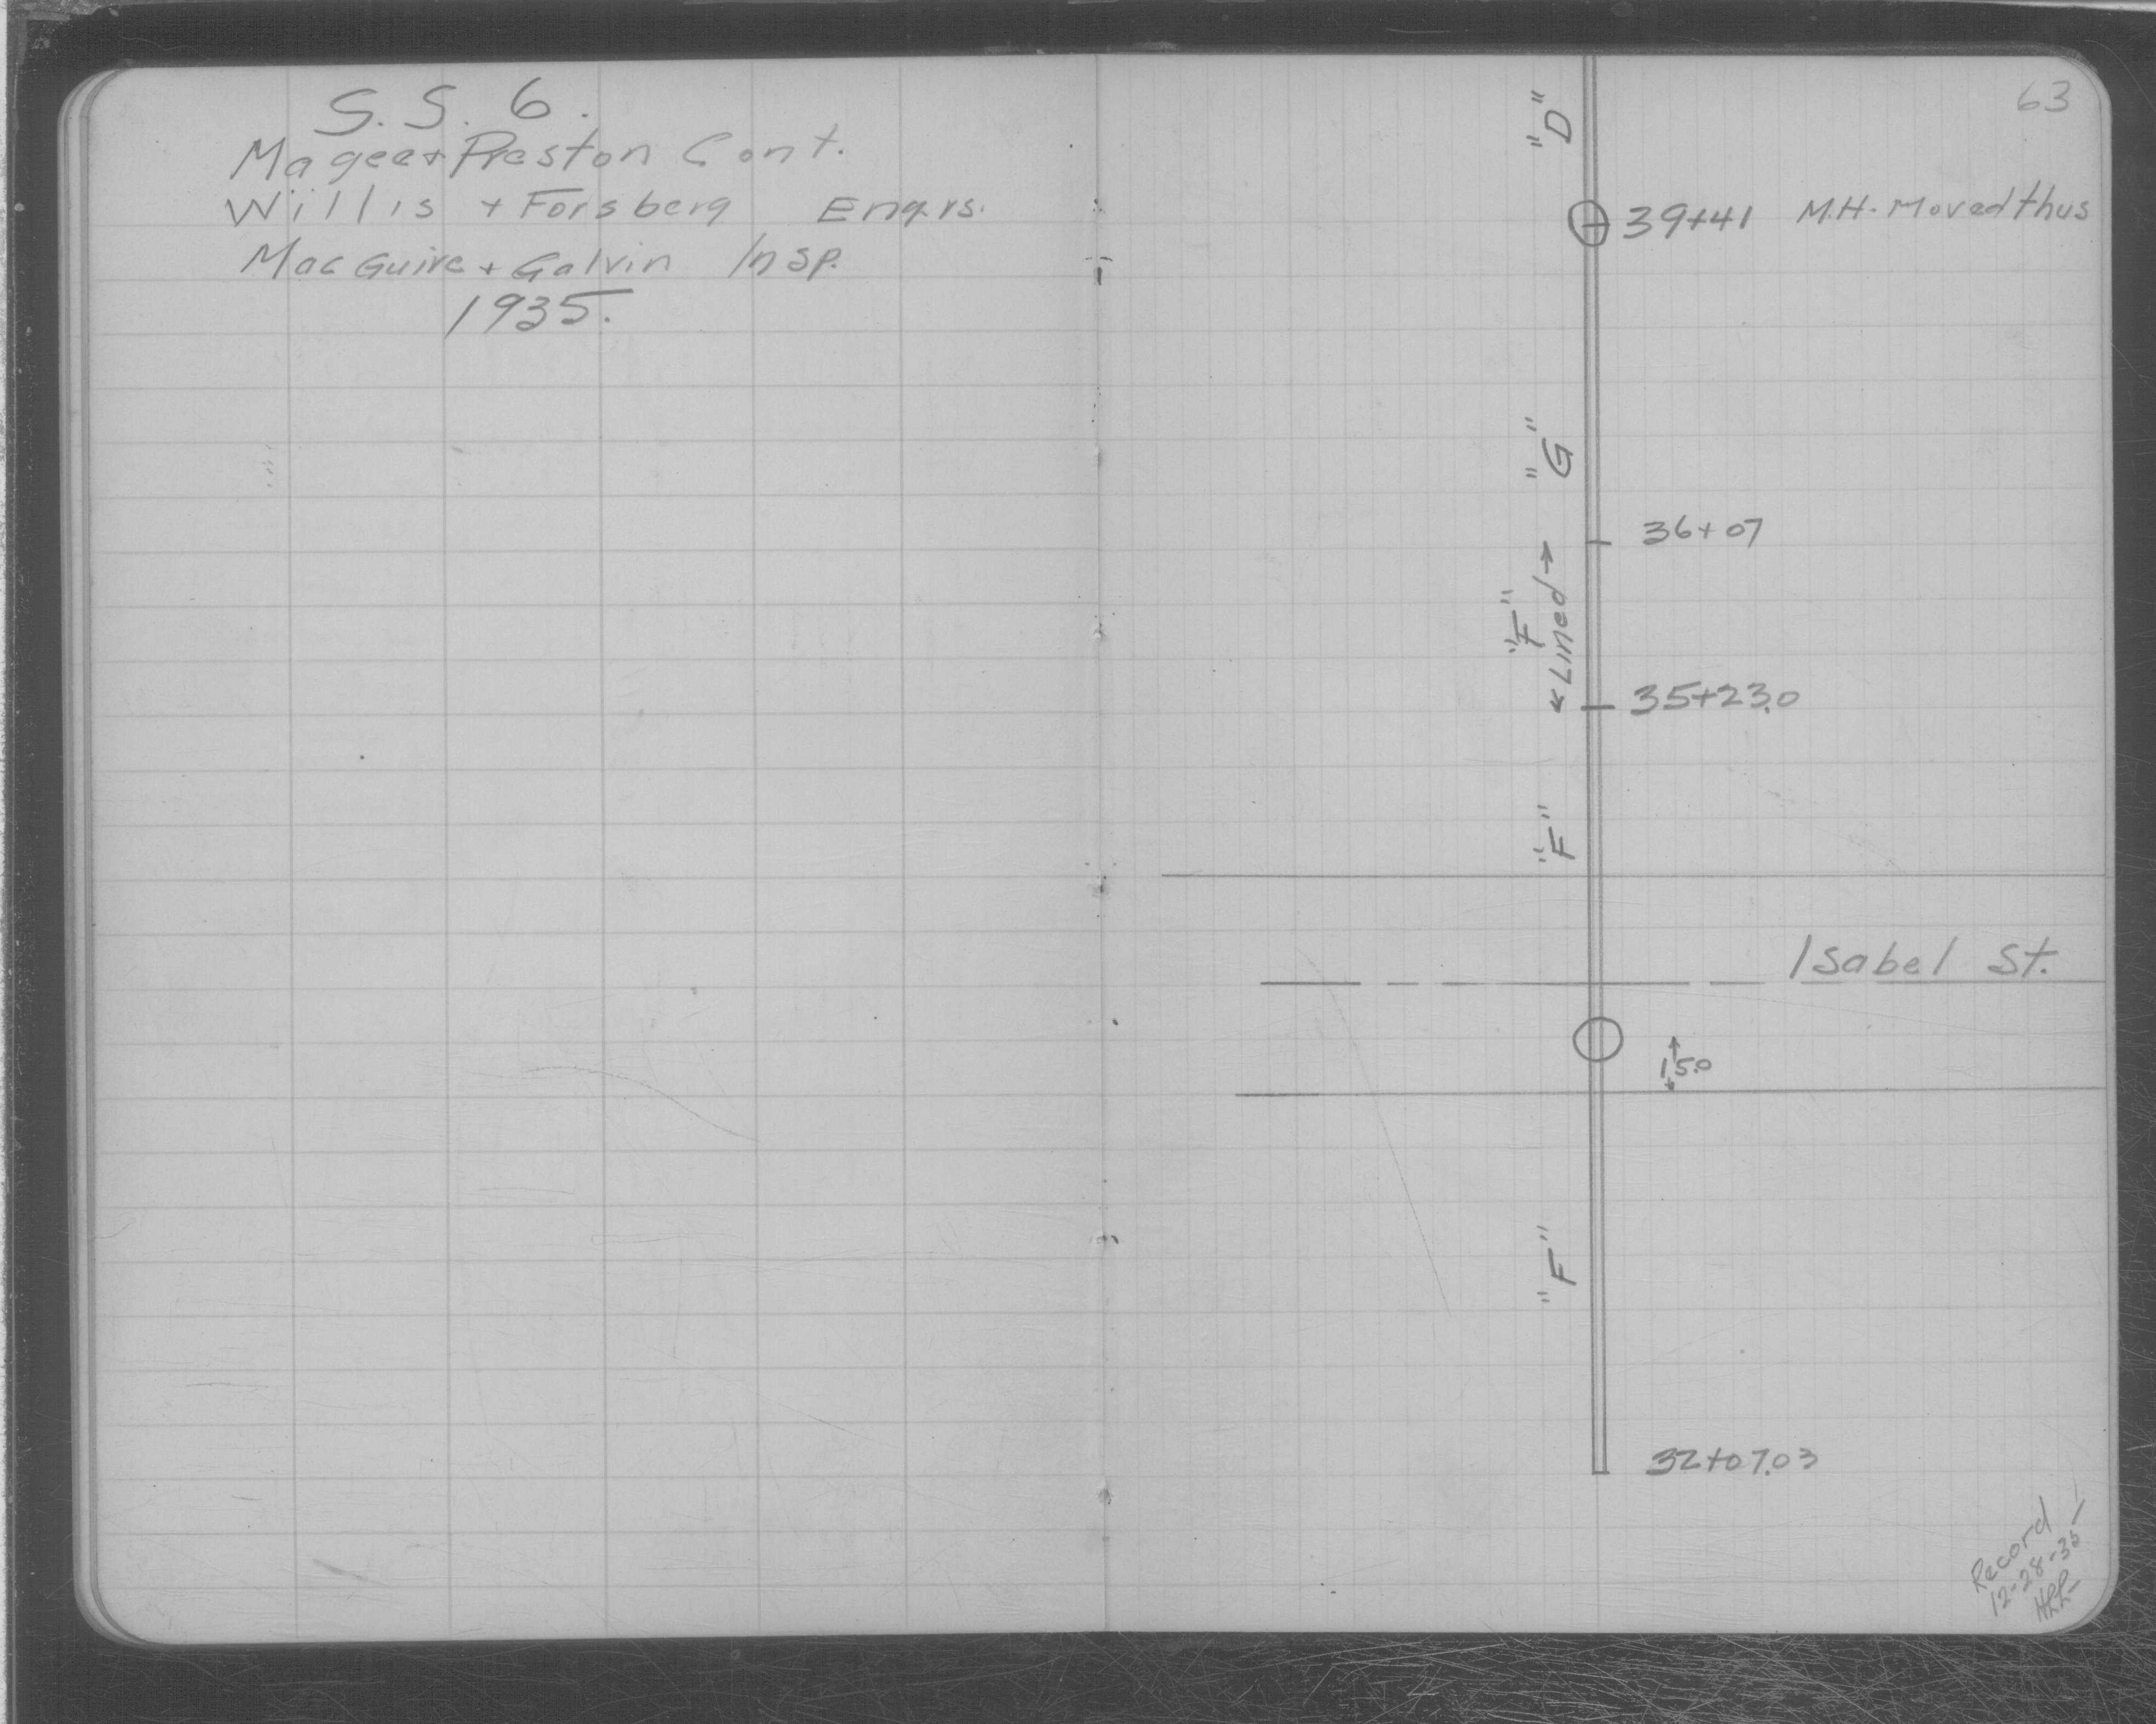 S.S. 6.
Magee + Preston Cont.
Willis + Forsberg Engrs.
MacGuire + Galvin Insp.
1935.
63
"D"
39+41 M.H. Moved thus
"G"
36+07
"F"
← Lined →
35+23.0
"F"
Isabel St.
15.0
"F"
32+07.03
Record
12-28-35